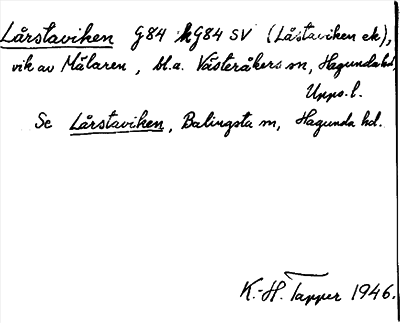 Lårstaviken G84 kG84 SV (Låstaviken ek),
vik av Mälaren, bl.a. Västeråkers sn, Hagunda hd,
Upps. l.
Se Lårstaviken, Balingsta sn, Hagunda hd.
K.-H. Tapper 1946.